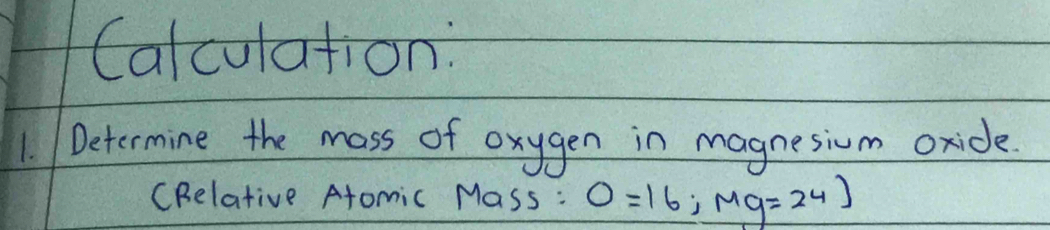 Calculation:
1. Determine the mass of oxygen in magnesium oxide.
(Relative Atomic Mass: O=16; Mg=24]